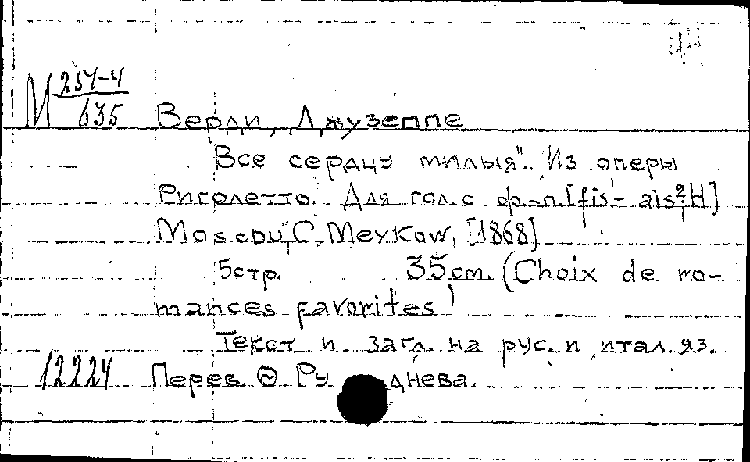 М 257-4
635
Верди, Джузеппе
"Все сердцу милыя". Из оперы
Риголетто. Для гол. с ф-п. [fis - ais² H]
Moscou, C. Meykow, [1868]
5 стр. 35 cm. (Choix de ro-
mances favorites)
Текст и загл. на рус. и итал. яз.
12224 Перев. Ѳ. Ру днева.